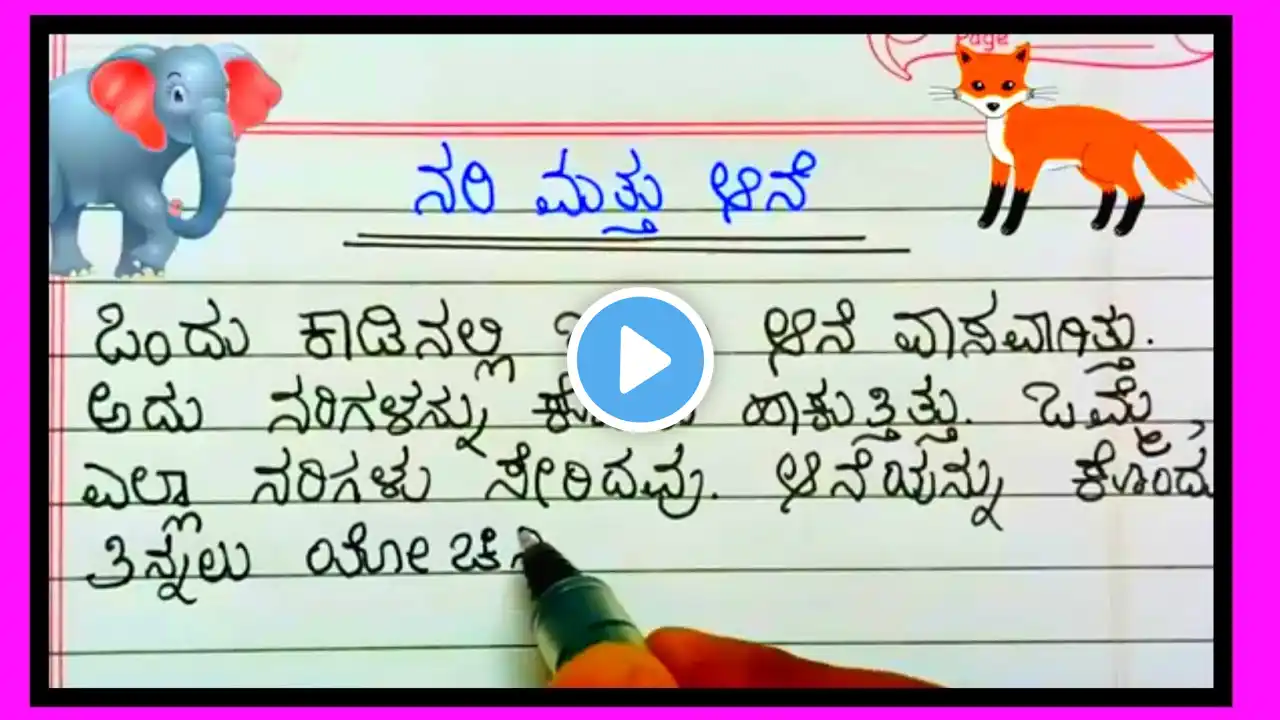 Page
ನರಿ ಮತ್ತು ಆನೆ
ಒಂದು ಕಾಡಿನಲ್ಲಿ ಆನೆ ವಾಸವಾಗಿತ್ತು.
ಅದು ನರಿಗಳನ್ನು ಹಾಕುತ್ತಿತ್ತು. ಒಮ್ಮೆ
ಎಲ್ಲಾ ನರಿಗಳು ಸೇರಿದವು. ಆನೆಯನ್ನು ಕೊಂದು
ತಿನ್ನಲು